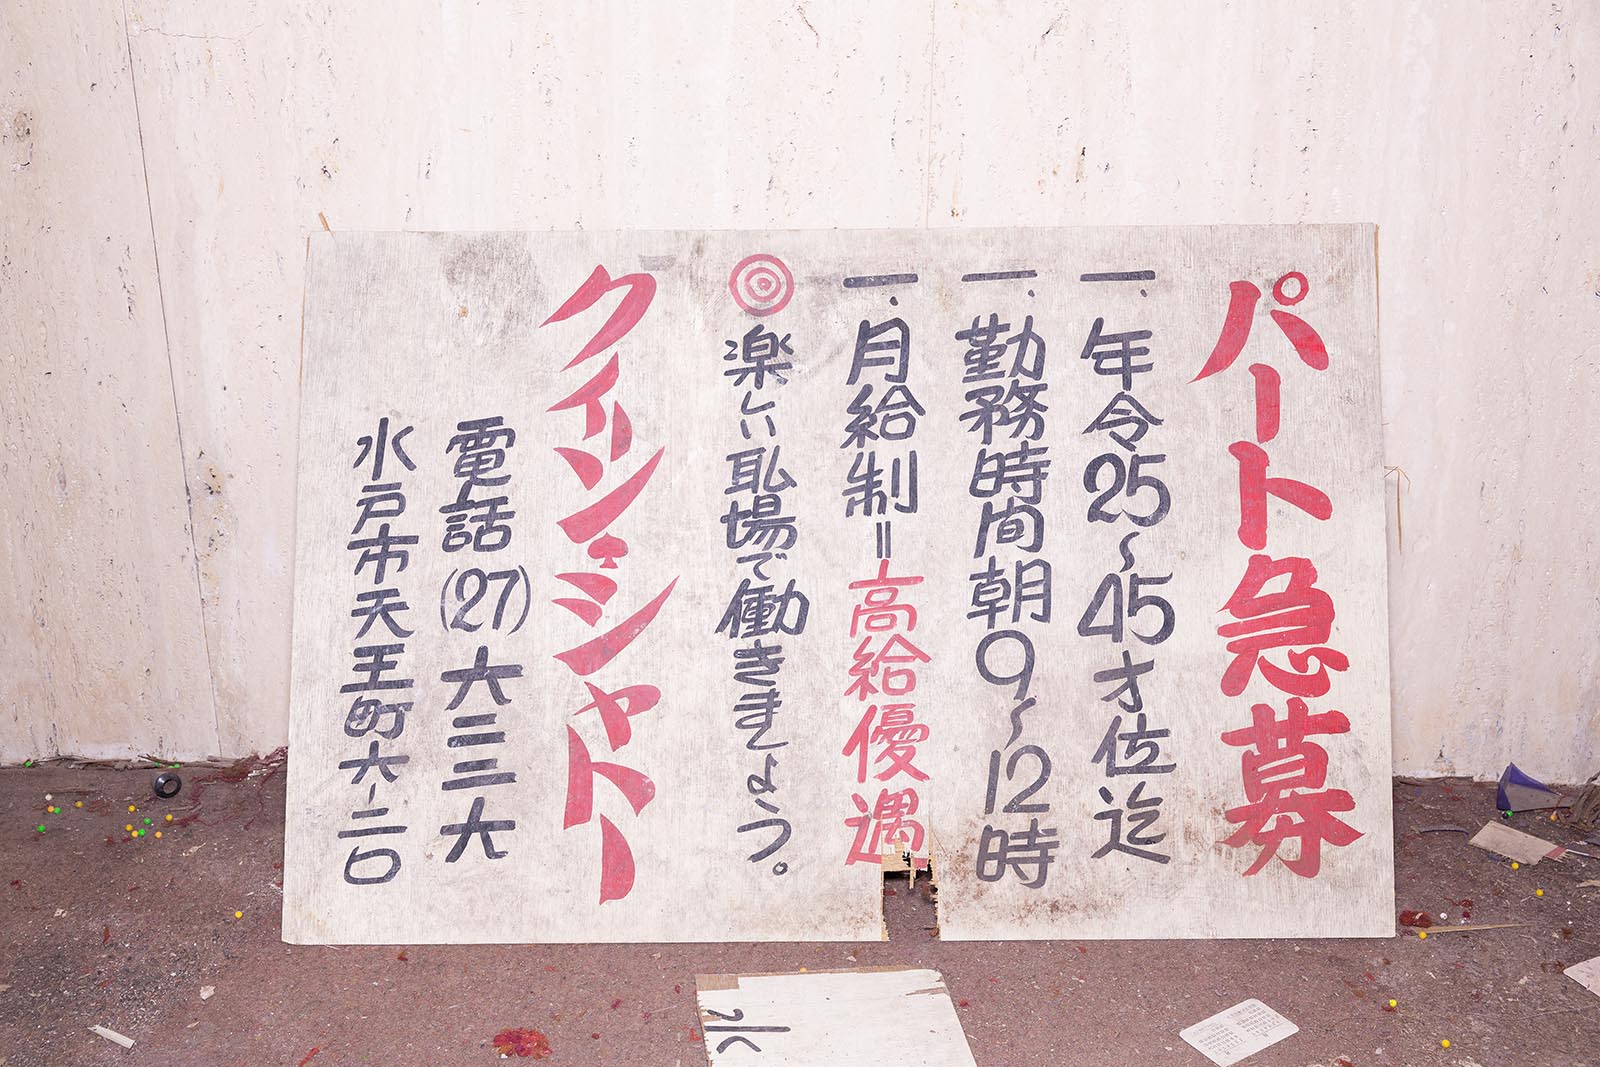 パート急募
一、年令25〜45才位迄
一、勤務時間朝9〜12時
一、月給制=高給優遇
◎楽しい職場で働きましょう。
クイーンシャトー
電話(27)六三三六
水戸市天王町六-二〇
水